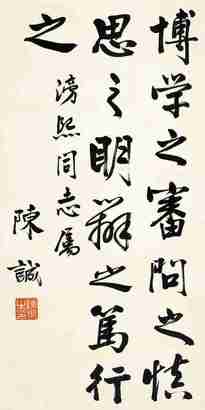 博学之審問之慎
思之明辨之篤行
之
滂熙同志屬
陳誠